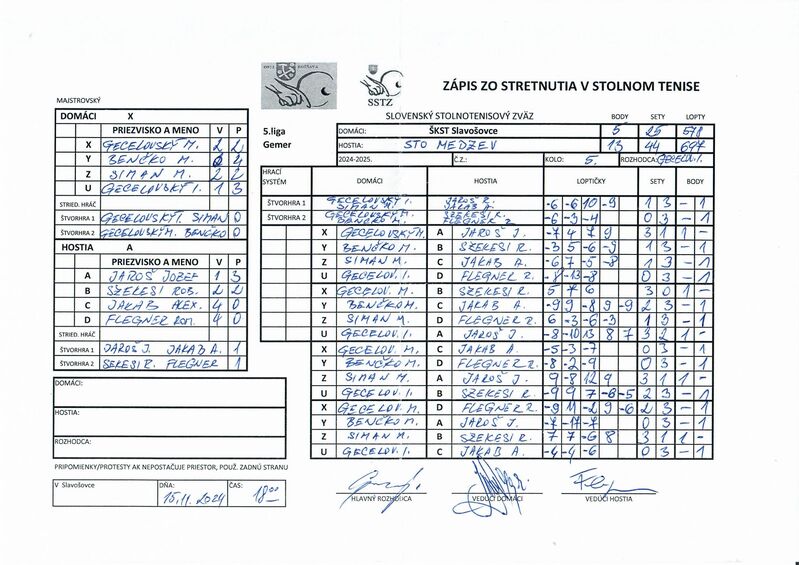 ZÁPIS ZO STRETNUTIA V STOLNOM TENISE
SSTZ
MAJSTROVSKÝ
SLOVENSKÝ STOLNOTENISOVÝ ZVÄZ BODY SETY LOPTY
5.liga
Gemer
DOMÁCI: ŠKST Slavošovce 5 25 578
HOSTIA: STO MEDZEV 13 44 697
2024-2025. Č.Z.: KOLO: 5. ROZHODCA: GECELOV. I.
DOMÁCI X
PRIEZVISKO A MENO V P
X GECELOVSKÝ M. 2 2
Y BENČKO M. 0 4
Z SIMAN M. 2 2
U GECELOVSKÝ I. 1 3
STRIED. HRÁČ
ŠTVORHRA 1 GECELOVSKÝ I. SIMAN 0
ŠTVORHRA 2 GECELOVSKÝ M. BENČKO 0
HOSTIA A
PRIEZVISKO A MENO V P
A JAROŠ JOZEF 1 3
B SZEKESI ROB. 2 2
C JAKAB ALEX. 4 0
D FLEGNER ROM. 4 0
STRIED. HRÁČ
ŠTVORHRA 1 JAROŠ J. JAKAB A. 1
ŠTVORHRA 2 SEKESI R. FLEGNER 1
DOMÁCI:
HOSTIA:
ROZHODCA:
PRIPOMIENKY/PROTESTY AK NEPOSTAČUJE PRIESTOR, POUŽ. ZADNÚ STRANU
V Slavošovce DŇA: 15.11.2024 ČAS: 18 00
HRACÍ SYSTÉM DOMÁCI HOSTIA LOPTIČKY SETY BODY
ŠTVORHRA 1 GECELOVSKÝ I. SIMAN M. JAROŠ JAKAB A. -6 -6 10 -9 1 3 - 1
ŠTVORHRA 2 GECELOVSKÝ M. BENČKO M. SZEKESI R. FLEGNER R. -6 -3 -4 0 3 - 1
X GECELOV. M. A JAROŠ J. -7 4 7 9 3 1 1 -
Y BENČKO M. B SZEKESI R. -3 5 -6 -9 1 3 - 1
Z SIMAN M. C JAKAB A. -6 7 -5 -8 1 3 - 1
U GECELOV. I. D FLEGNER R. -8 -13 -8 0 3 - 1
X GECELOV. M. B SZEKESI R. 5 7 6 3 0 1 -
Y BENČKO M. C JAKAB A. -9 9 -8 9 -9 2 3 - 1
Z SIMAN M. D FLEGNER R. 6 -3 -6 -3 1 3 - 1
U GECELOV. I. A JAROŠ J. -8 -10 13 8 7 3 2 1 -
X GECELOV. M. C JAKAB A. -5 -3 -7 0 3 - 1
Y BENČKO M. D FLEGNER R. -8 -2 -9 0 3 - 1
Z SIMAN M. A JAROŠ J. 9 -8 12 9 3 1 1 -
U GECELOV. I. B SZEKESI R. -9 9 7 -6 -5 2 3 - 1
X GECELOV. M. D FLEGNER R. -9 11 -2 9 -6 2 3 - 1
Y BENČKO M. A JAROŠ J. -7 -17 -7 0 3 - 1
Z SIMAN M. B SZEKESI R. 7 7 -6 8 3 1 1 -
U GECELOV. I. C JAKAB A. -4 -4 -6 0 3 - 1
HLAVNÝ ROZHODCA VEDÚCI DOMÁCI VEDÚCI HOSTIA